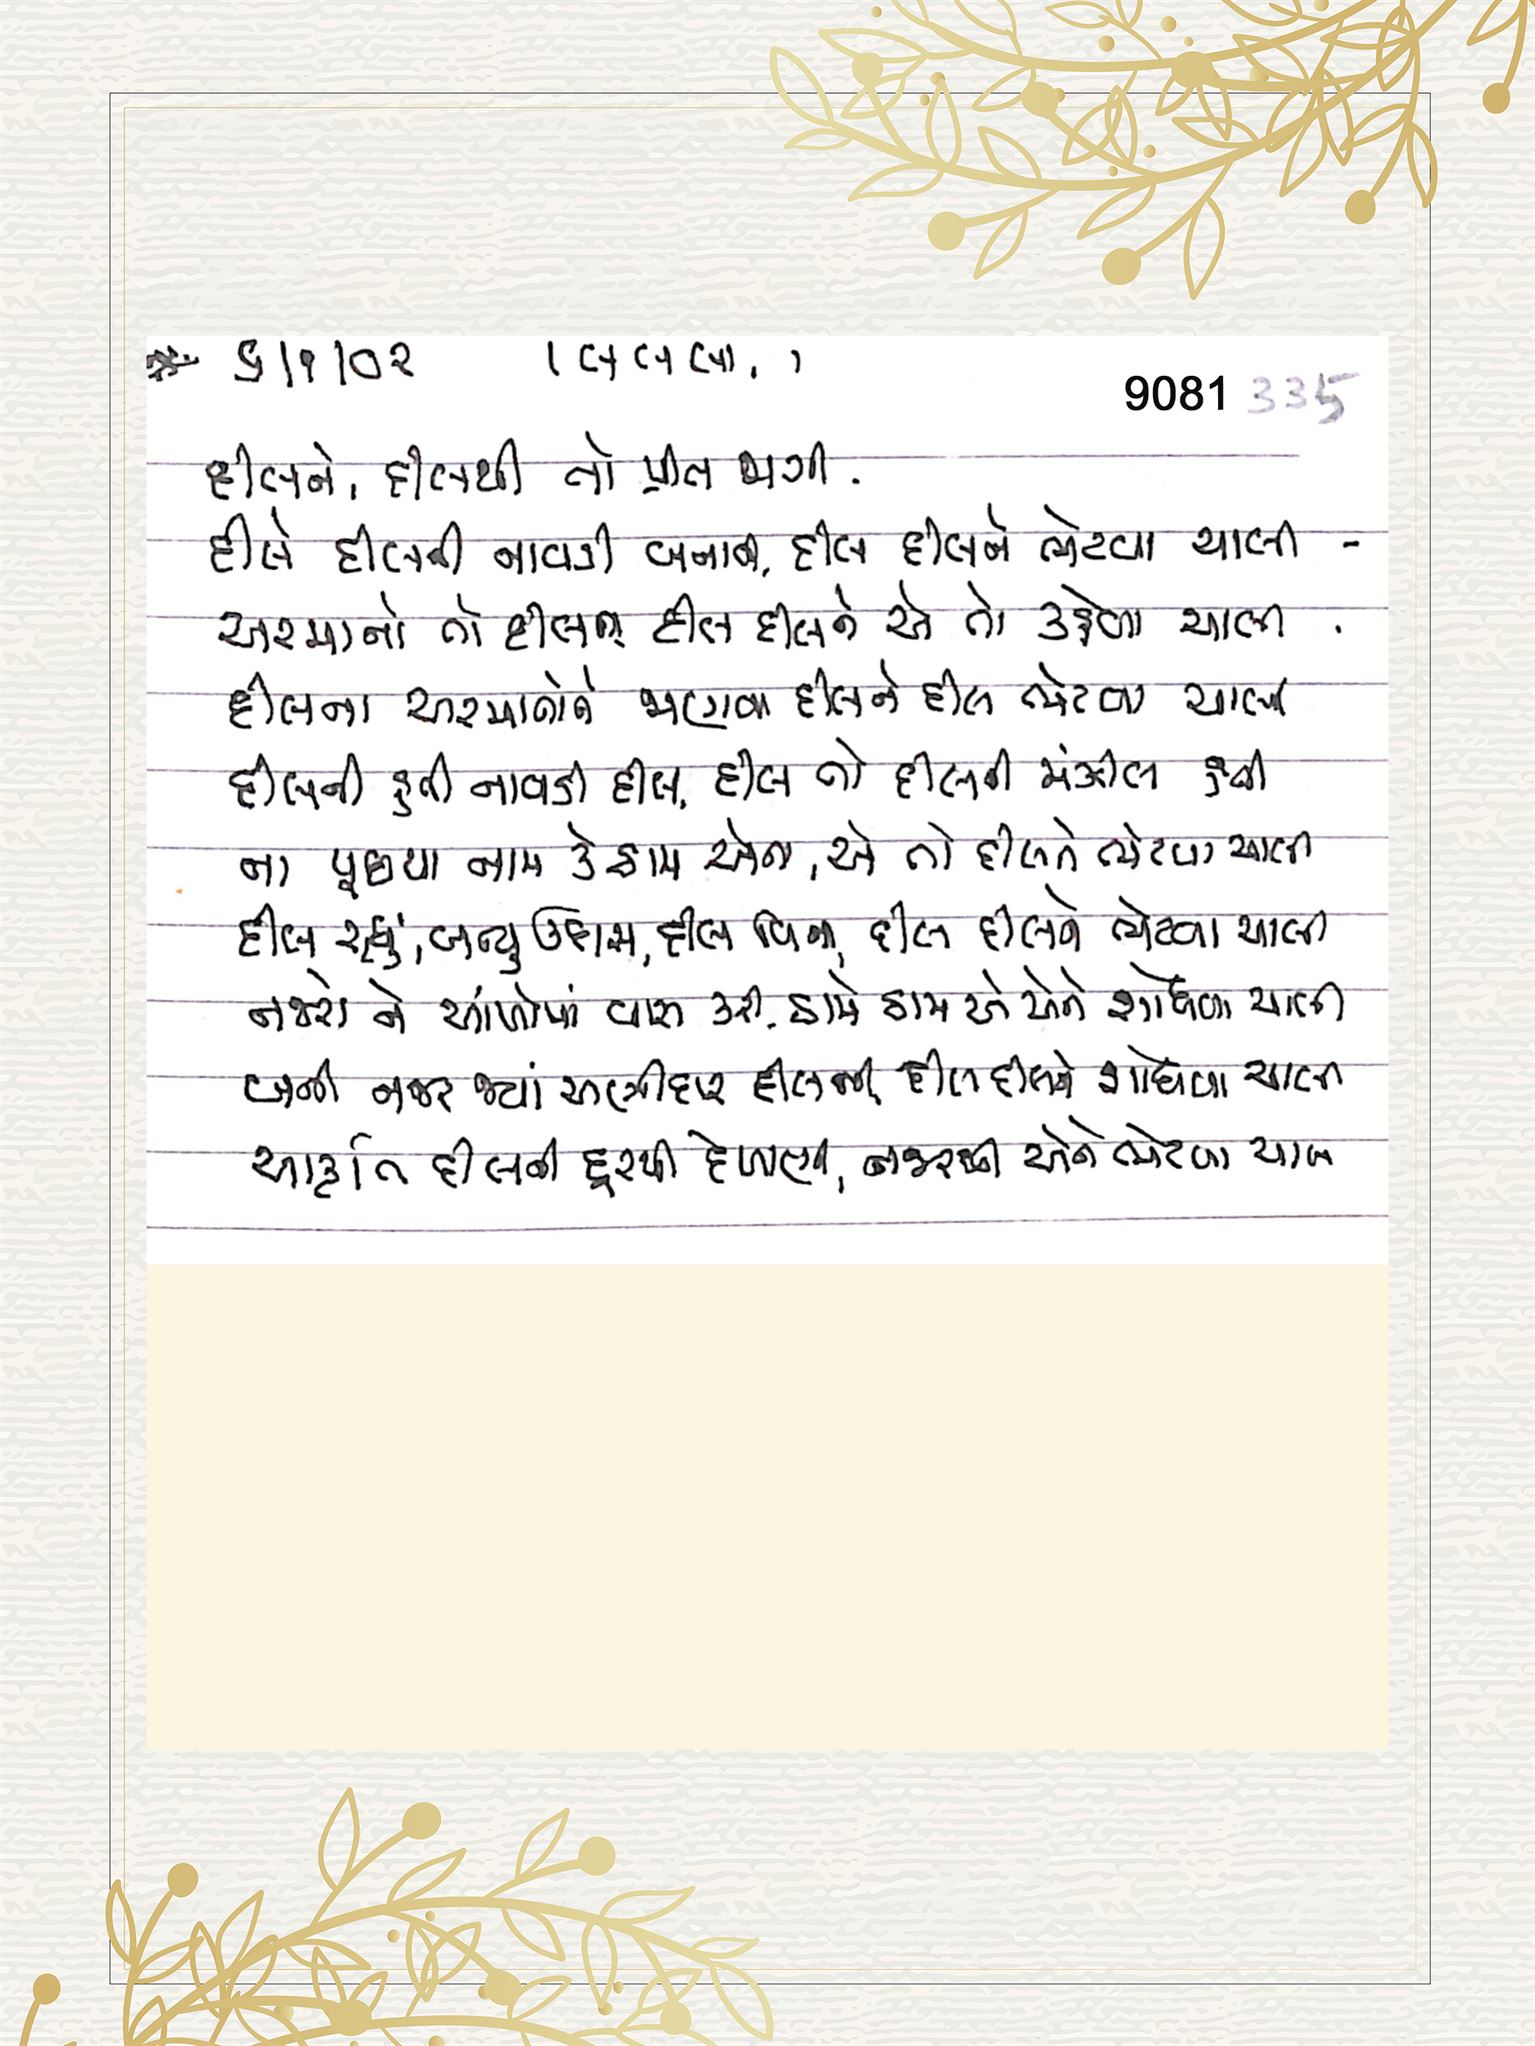 ૬/૧/૦૨ (લ લ લા. )
9081 335
દીલને, દીલથી તો પ્રીત જાગી.
દીલે દીલની નાવડી બનાવી, દીલ દીલને ભેટવા ચાલી -
અરમાનો તો દીલના દીલ દીલને એ તો ચાલી .
દીલના અરમાનોને જાણવા દીલને દીલ ભેટવા ચાલી
દીલની હતી નાવડી દીલ, દીલ તો દીલની મંઝીલ હતી
ના પૂછયા નામ કે ઠામ એના, એ તો દીલને ભેટવા ચાલી
દીલ રહ્યું, બન્યુ ઉદાસ, દીલ વિના, દીલ દીલને ભેટવા ચાલી
નજરો ને આંખોમાં વાસ કરી, ઠામે ઠામ એ એને શોધવા ચાલી
બની નજર જ્યાં દીલની, દીલ દીલને શોધવા ચાલી
દીલની દૂરથી દેખાણી, નજરથી એને ભેટવા ચાલી